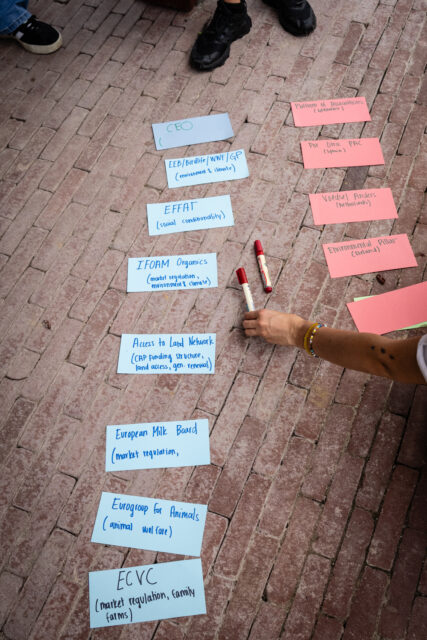 CEO
EEB/Birdlife/WWF/GP
(environment & climate)
EFFAT
(social conditionality)
IFOAM Organics
(market regulation,
environment & climate)
Access to Land Network
(CAP funding, structure,
land access, gen. renewal)
European Milk Board
(market regulation,
Eurogroup for Animals
(animal welfare)
ECVC
(market regulation, family
farms)
Platform of
Por Otra PAC
(Spain)
Voedsel Anders
(Netherlands)
Environmental Pillar
(Ireland)